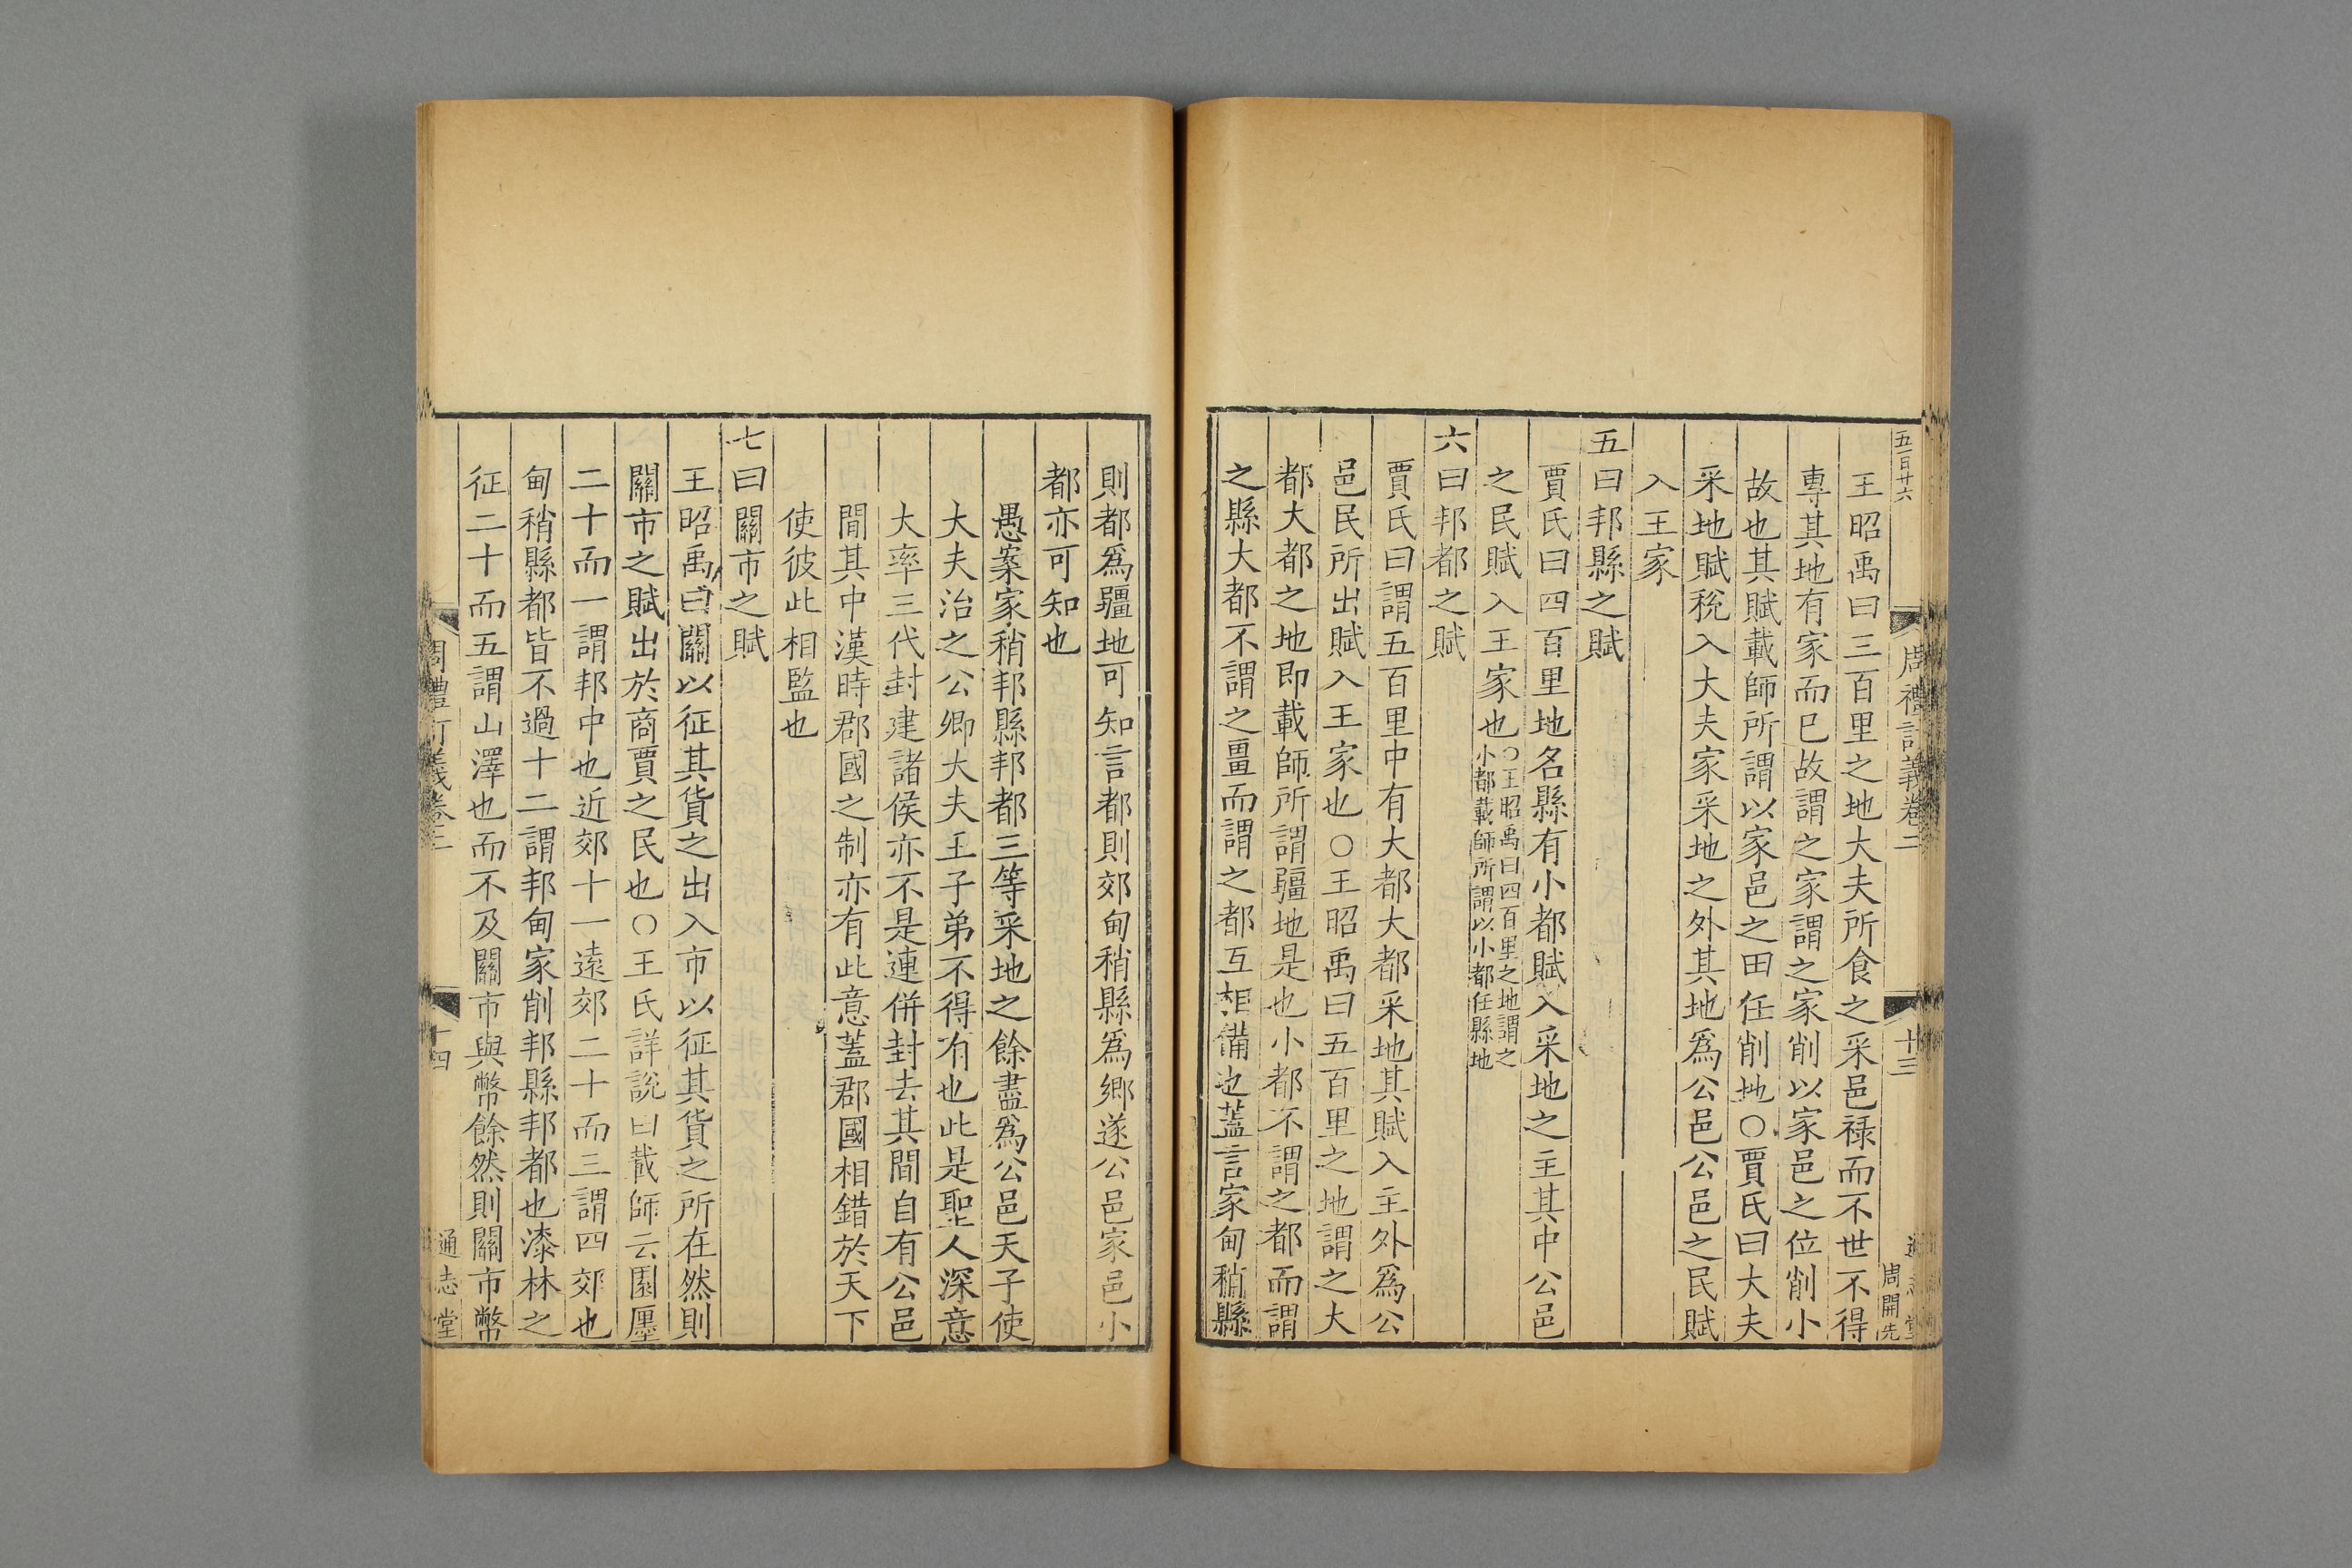 五百廿六
周禮訂義卷二
十三
周開先
王昭禹曰三百里之地大夫所食之采邑祿而不世不得
專其地有家而已故謂之家謂之家削以家邑之位削小
故也其賦載師所謂以家邑之田任削地○賈氏曰大夫
采地賦稅入大夫家采地之外其地爲公邑公邑之民賦
入王家
五曰邦縣之賦
賈氏曰四百里地名縣有小都賦入采地之主其中公邑
之民賦入王家也○王昭禹曰四百里之地謂之
小都載師所謂以小都任縣地
六曰邦都之賦
賈氏曰謂五百里中有大都大都采地其賦入主外爲公
邑民所出賦入王家也○王昭禹曰五百里之地謂之大
都大都之地即載師所謂疆地是也小都不謂之都而謂
之縣大都不謂之畺而謂之都互相備也蓋言家甸稍縣
則都爲疆地可知言都則郊甸稍縣爲鄉遂公邑家邑小
都亦可知也
愚案家稍邦縣邦都三等采地之餘盡爲公邑天子使
大夫治之公卿大夫王子弟不得有也此是聖人深意
大率三代封建諸侯亦不是連併封去其間自有公邑
閒其中漢時郡國之制亦有此意蓋郡國相錯於天下
使彼此相監也
七曰關市之賦
王昭禹曰關以征其貨之出入市以征其貨之所在然則
關市之賦出於商賈之民也○王氏詳說曰載師云園廛
二十而一謂邦中也近郊十一遠郊二十而三謂四郊也
甸稍縣都皆不過十二謂邦甸家削邦縣邦都也漆林之
征二十而五謂山澤也而不及關市與幣餘然則關市幣
周禮訂義卷二
十四
通志堂